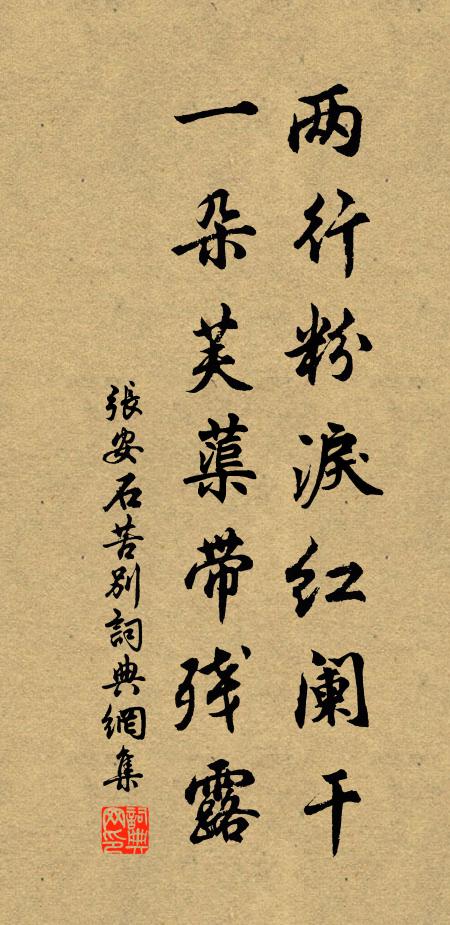 两行粉淚红阑干
一朵芙蕖带残露
張安石苦别詞典網集
詞典网印